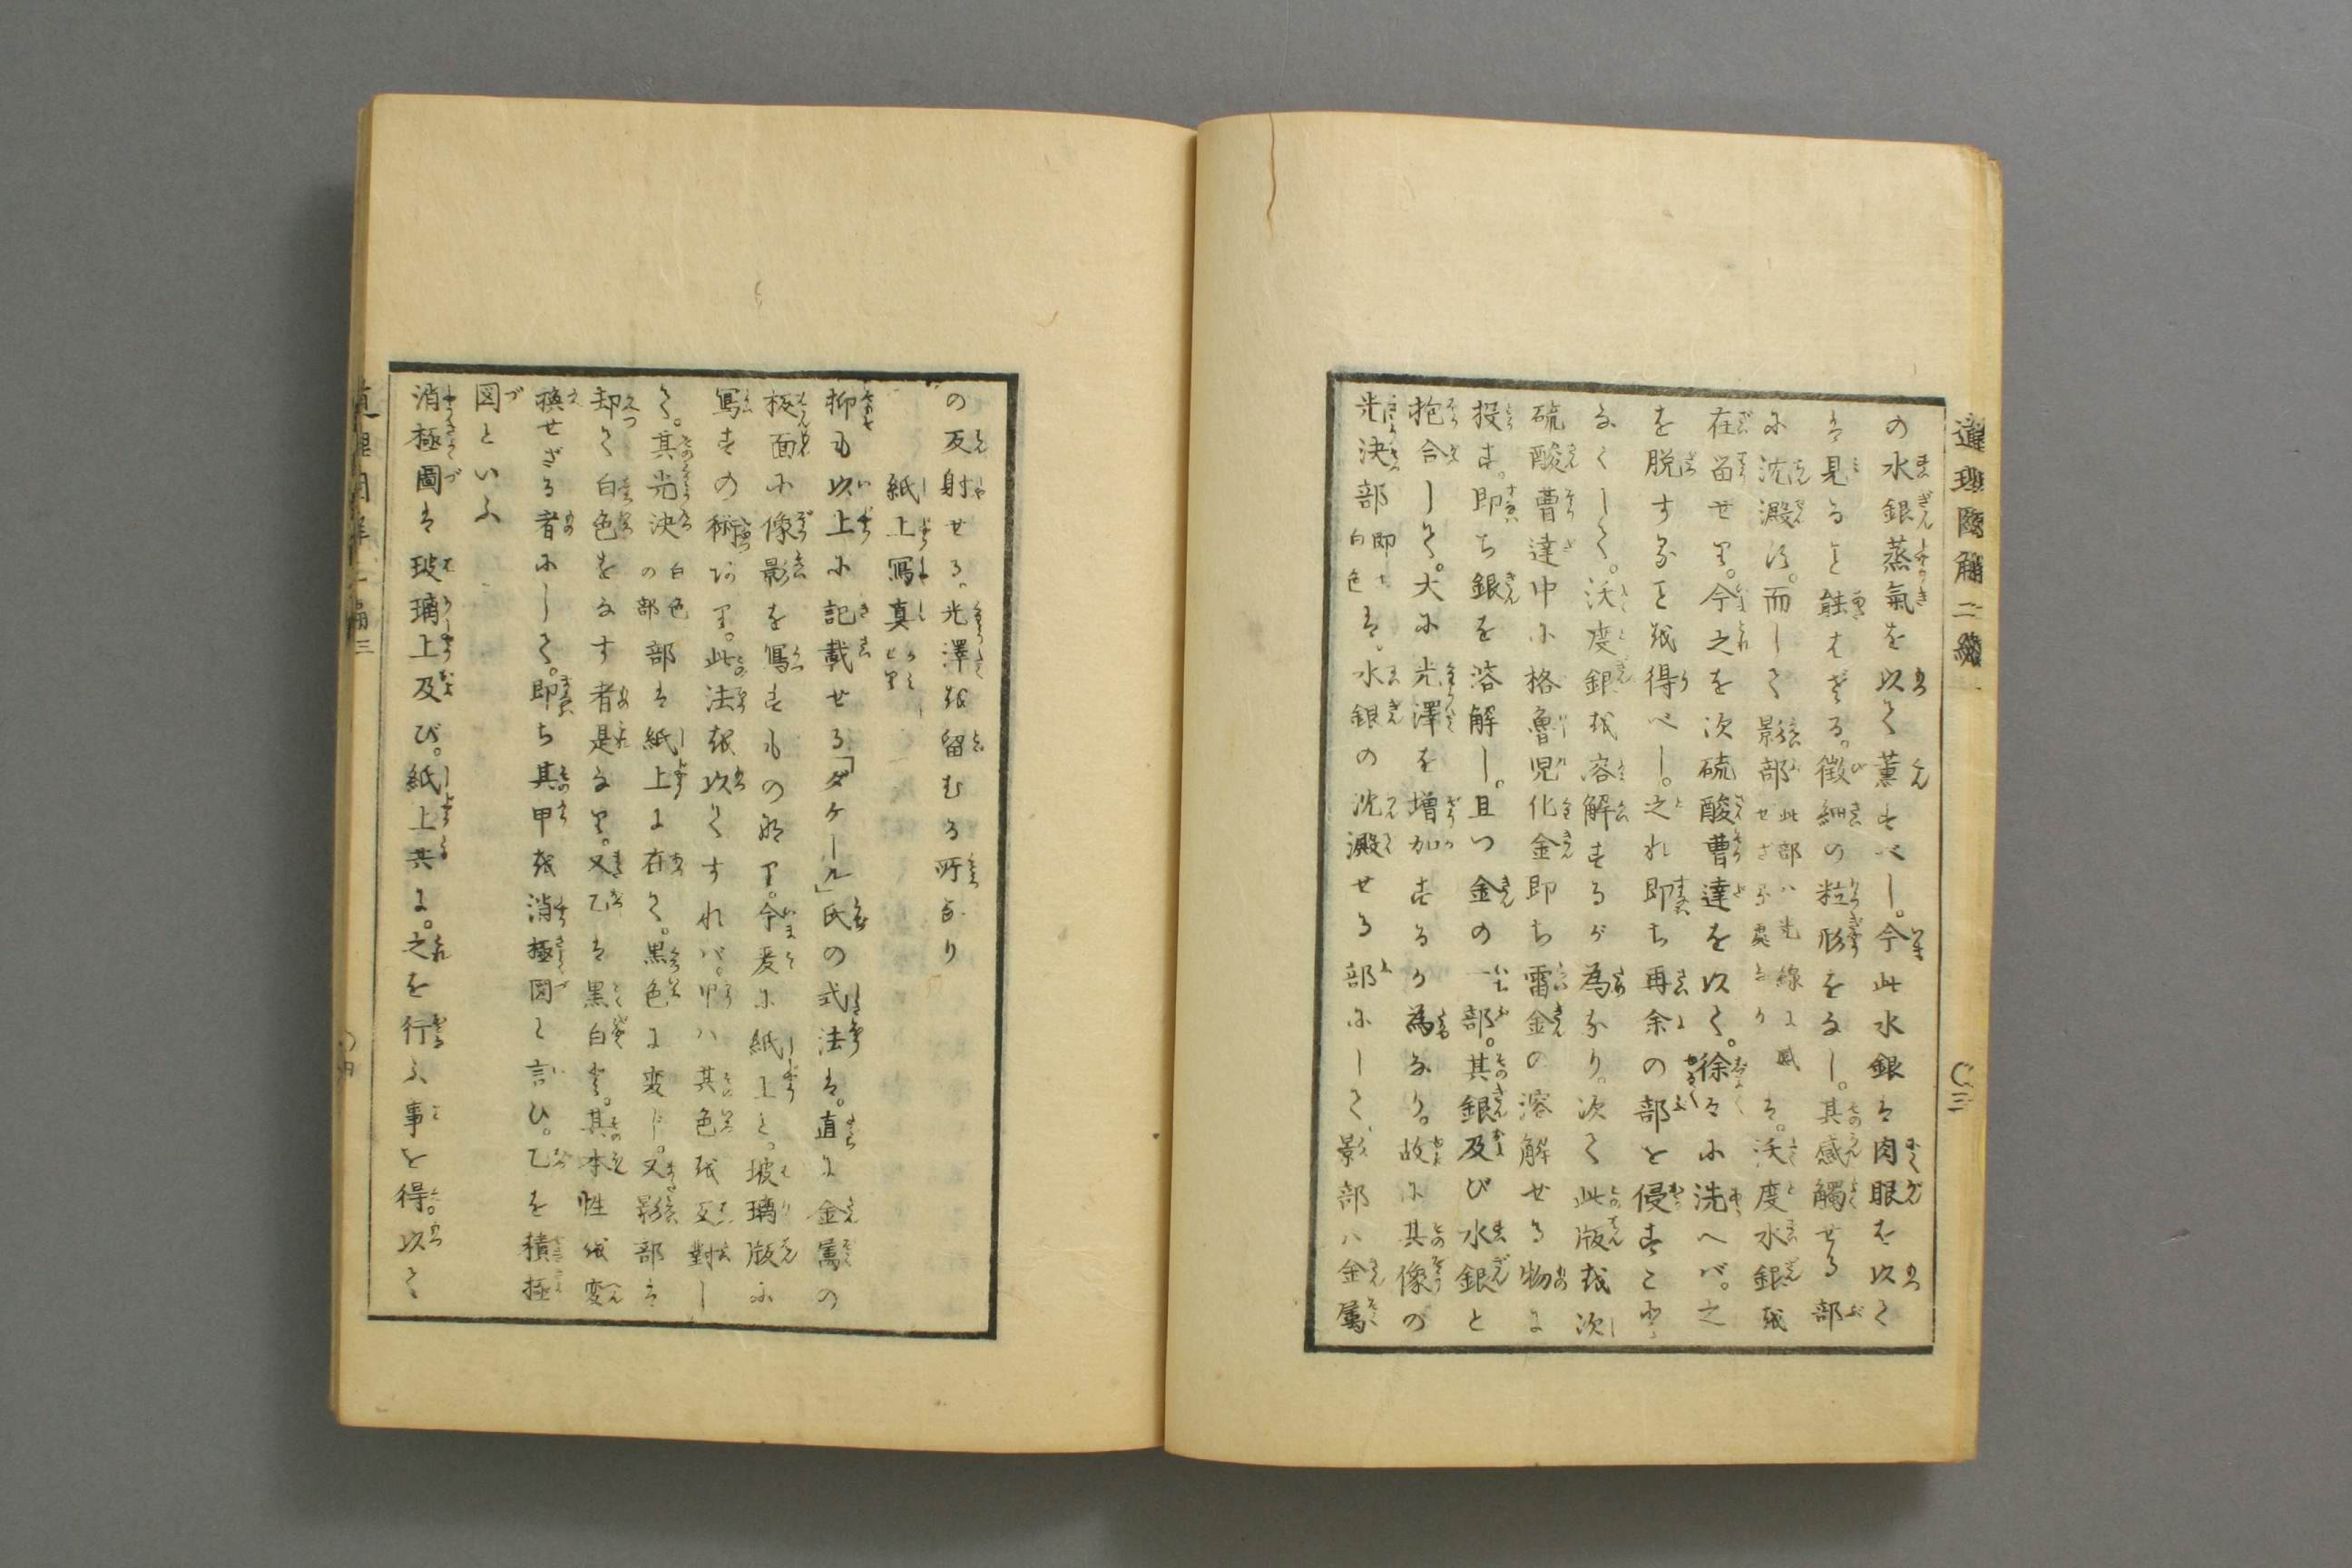 道理図解二編
〇三
の水銀蒸氣を以て薫すべし。今此水銀は肉眼を以て
は見ること能はざる。微細の粒形をなし。其感觸せる部
に沈澱す。而して影部此部ハ光線に感ぜざる處なりは。沃度水銀を
在留せり。今之を次硫酸曹達を以て。徐々に洗へバ。之
を脱することを得べし。之れ即ち再余の部を侵すこと
なくして。沃度銀を溶解するが為なり。次て此版を次
硫酸曹達中に格魯児化金即ち雷金の溶解せる物に
投す。即ち銀を溶解し。且つ金の一部。其銀及び水銀と
抱合して。大に光澤を増加するが為なり。故に其像の
光決部即ち白色は。水銀の沈澱せる部にして、影部ハ金属
の反射せる。光澤を留むる所なり
紙上寫真
抑も以上に記載せる「ダケール」氏の式法は。直に金属の
板面に像影を寫すもの也。今爰に紙上と。玻璃版に
寫すの術あり。此法を以てすれバ。甲ハ其色を反對し
て。其光決白色の部部は紙上に在て。黒色に変じ。又影部は
却て白色をなす者是なり。又乙は黒白と。其本性を変
換せざる者にして。即ち其甲を消極図と言ひ。乙を積極
図といふ
消極圖は玻璃上及び。紙上共に。之を行ふ事を得。以て